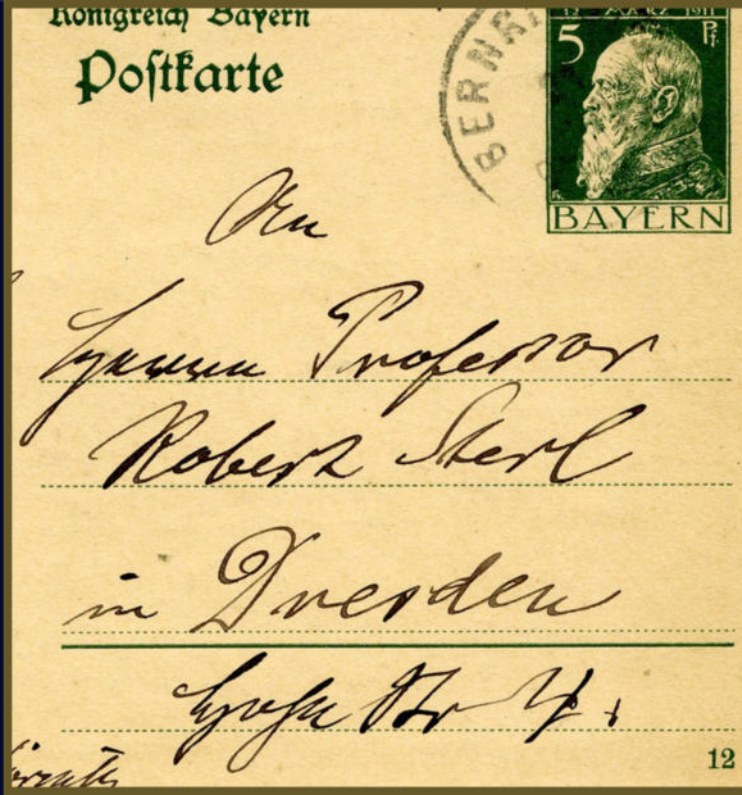 Königreich Bayern
Poſtkarte
12. MÄRZ 1911
5 Pf.
BERNR
BAYERN
An
Herrn Professor
Robert Sterl
in Dresden
Str 4.
12